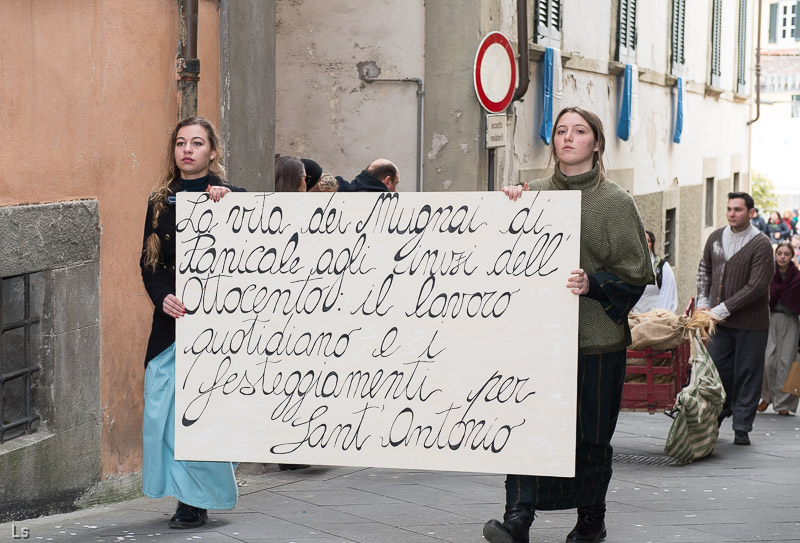 La vita dei Mugnai di
Panicale agli inizi dell'
Ottocento: il lavoro
quotidiano e i
festeggiamenti per
Sant'Antonio
eccetto
residenti
Ls